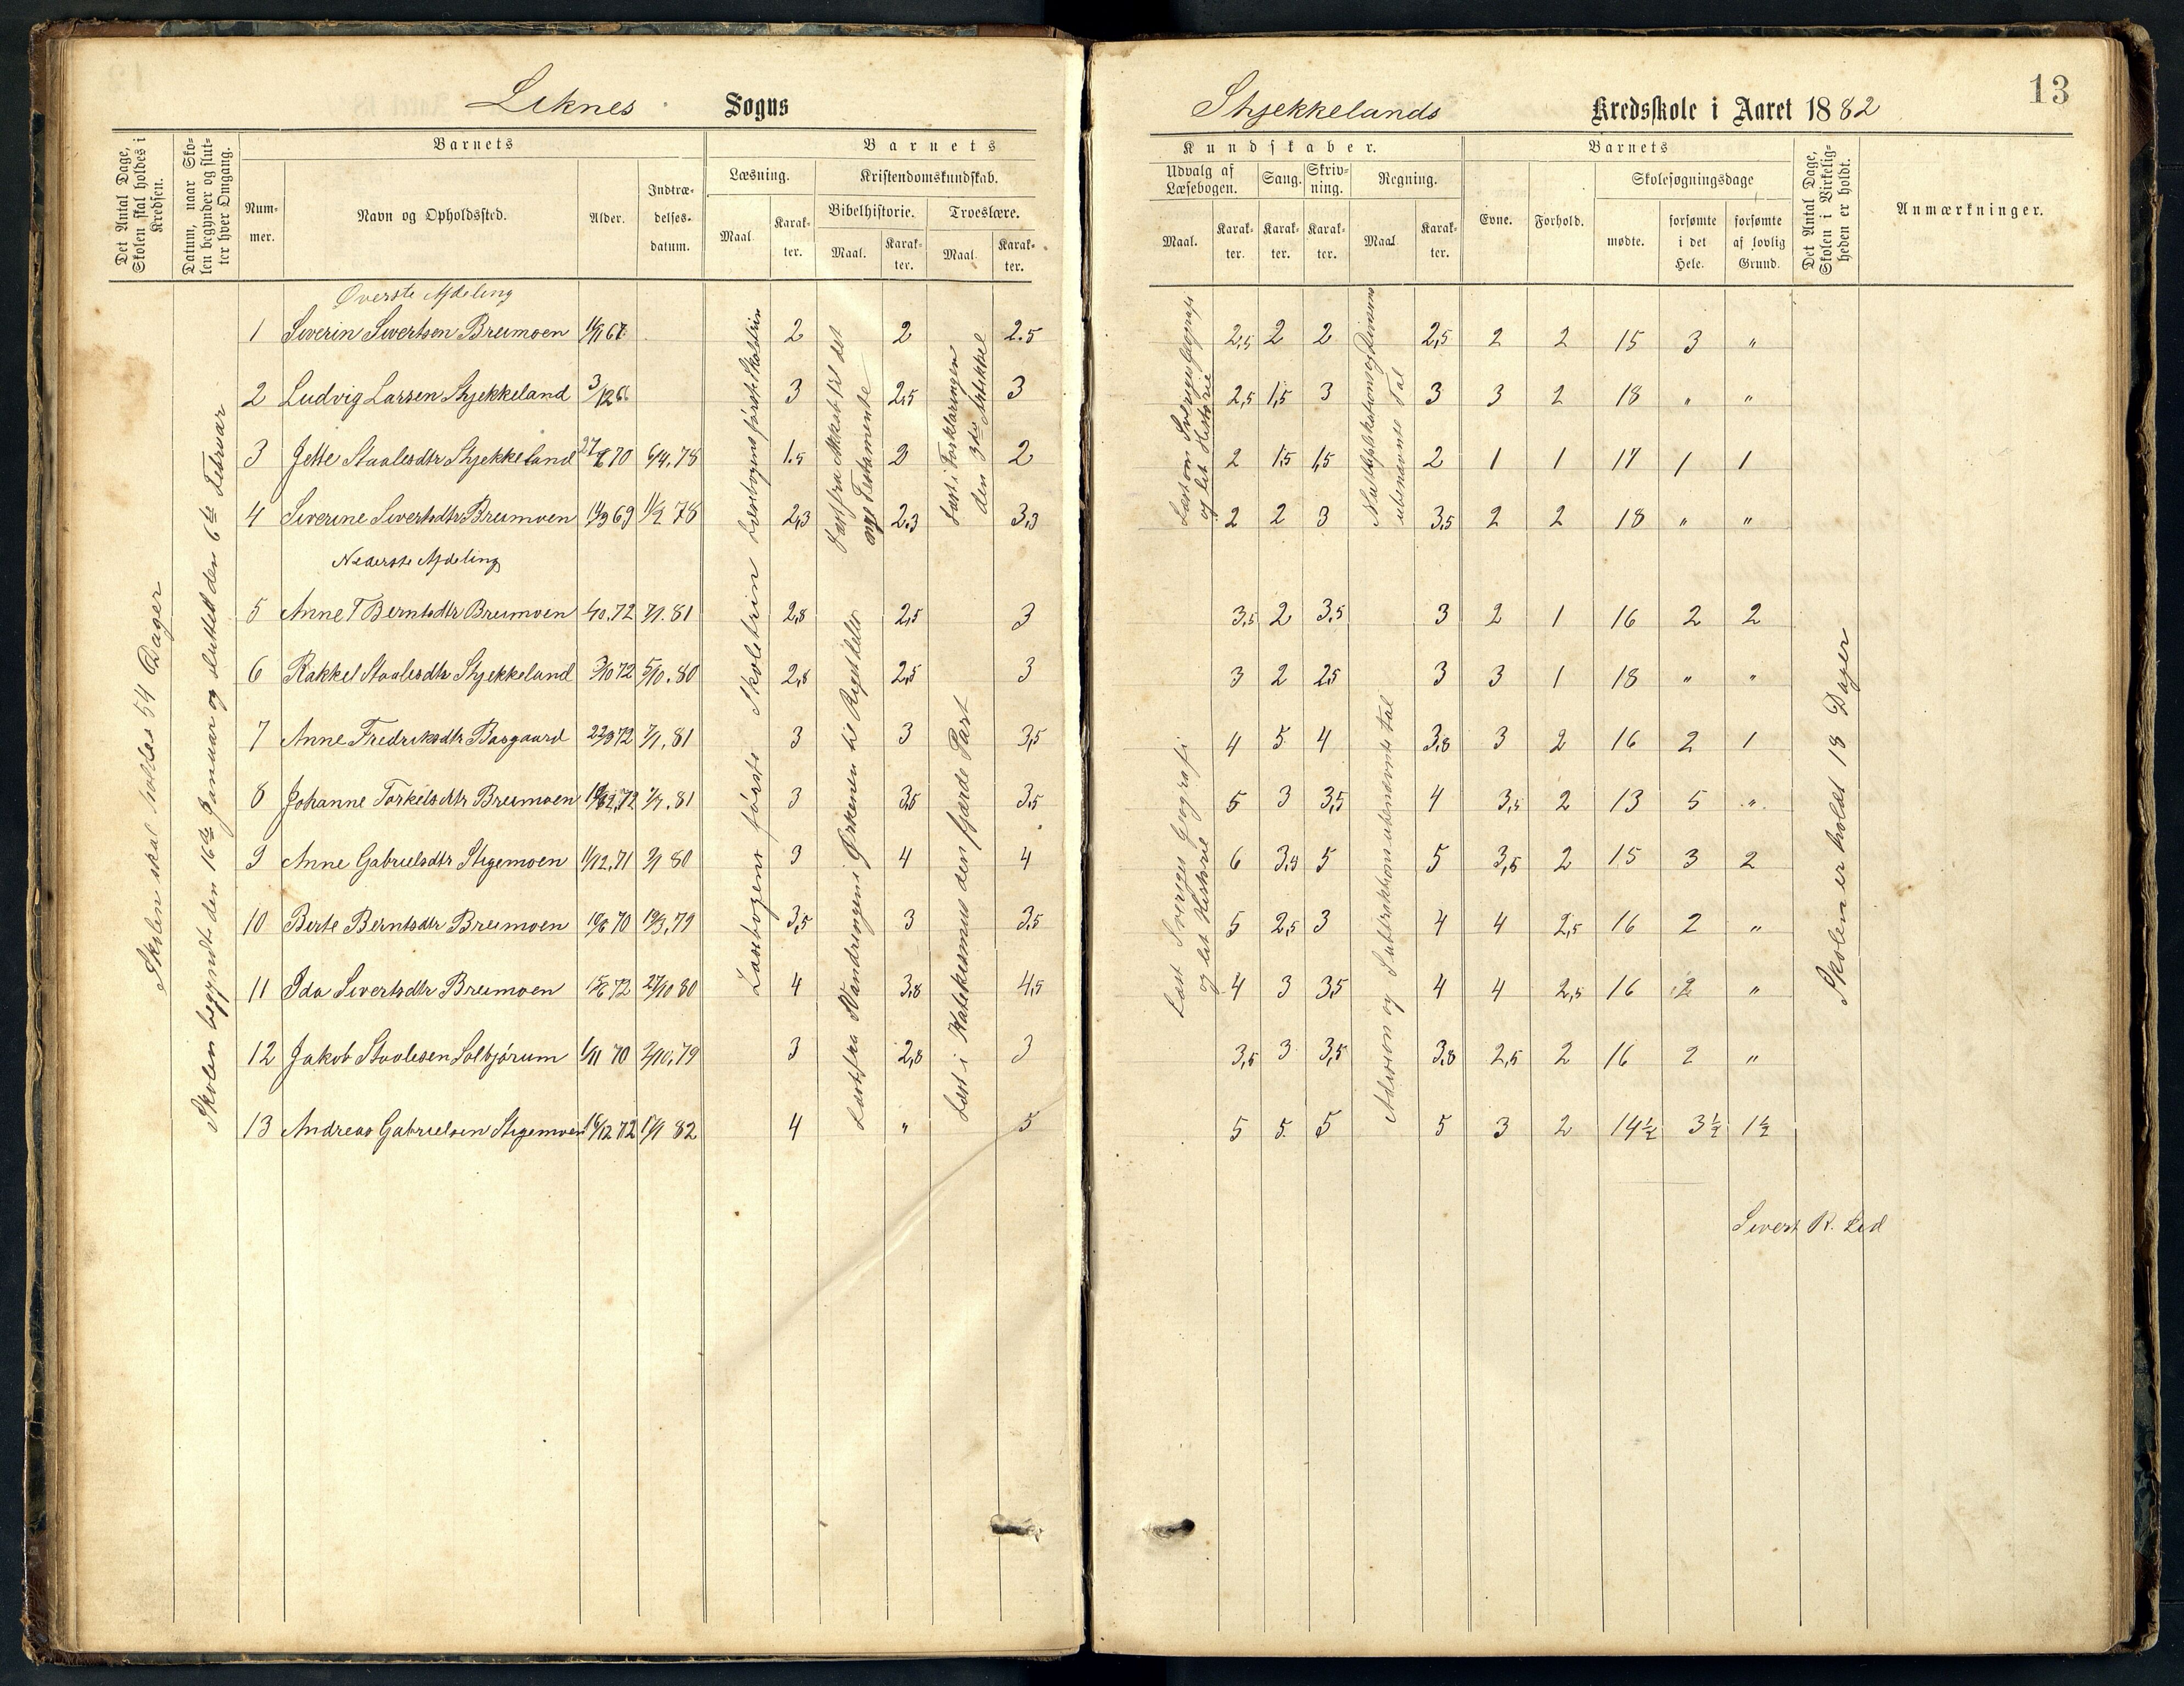 Liknes Sogns
Det Antal Dage, Skolen skal holdes i Kredsen.
Datum, naar Skolen begynder og slutter hver Omgang.
Barnets
Nummer.
Navn og Opholdssted.
Alder.
Indtrædelsesdatum.
Barnets
Læsning.
Maal.
Karakter.
Kristendomskundskab.
Bibelhistorie.
Maal.
Karakter.
Troeslære.
Maal.
Karakter.
Skolen skal holdes 54 Dager
Skolen begyndt den 16de Januar og sluttet den 6te Februar
Øverste Afdeling
1 Siverin Sivertsen Breimoen 67 2 2 2.5
2 Ludvig Larsen Stjekkeland 3/12 3 2,5 3
3 Jette Staalesdtr Stjekkeland 70 6/4.78 1.5 2 2
4 Siverine Sivertsdtr Breimoen 69 78 2,3 2.3 3,3
Nederste Afdeling
5 Anne T Berntsdtr Breimoen 72 7/1.81 2,8 2,5 3
6 Rakkel Staalesdtr Stjekkeland 3/10 72 5/10.80 2,8 2,5 3
7 Anne Fredriksdtr Bosgaard 22/9 72 7/1.81 3 3 3,5
8 Johanne Torkelsdtr Breimoen 72 7/1.81 3 3,5 3.5
9 Anne Gabrielsdtr Stigemoen 11/12.71 80 3 4 4
10 Berte Berntsdtr Breimoen 70 79 3,5 3 3.5
11 Ida Sivertsdtr Breimoen 72 27/10 80 4 3,8 4,5
12 Jakob Staalesen Solbjørum 70 2/10.79 3 2,8 3
13 Andreas Gabrielsen Stigemoen 72 82 4 " 5
Læsebogens første Skoletrin
Læst fra Vandringen i Ørkenen til Rigets
Læst i Katekismus den fjærde Part
Læst i Forklaringen
den 3die Artikkel
13
Stjekkelands Kredsskole i Aaret 1882
Kundskaber.
Udvalg af Læsebogen.
Maal.
Karakter.
Sang.
Karakter.
Skrivning.
Karakter.
Regning.
Maal.
Karakter.
Barnets
Evne.
Forhold.
Skolesøgningsdage
mødte.
forsømte i det Hele.
forsømte af lovlig Grund.
Det Antal Dage, Skolen i Virkeligheden er holdt.
Anmærkninger.
2,5 2 2 2,5 2 2 15 3 "
2,5 1,5 3 3 3 2 18 " "
2 1,5 1,5 2 1 1 17 1 1
2 2 3 3,5 2 2 18 " "
3,5 2 3,5 3 2 1 16 2 2
3 2 2,5 3 3 1 18 " "
4 5 4 3,8 3 2 16 2 1
5 3 3,5 4 3,5 2 13 5 "
6 3,5 5 5 3,5 2 15 3 2
5 2,5 3 4 4 2,5 16 2 "
4 3 3,5 4 4 2,5 16 2 "
3,5 3 3,5 3,8 2,5 2 16 2 "
5 5 5 5 3 2 14½ 3½ 1½
Læst om Sveriges Geografi
og let Historie
ubenævnte Tal
Læst Sveriges Geografi
og let Historie
Addision og Subtraktion ubenævnte tal
Skolen er holdt 18 Dager
Sivert R. Lid